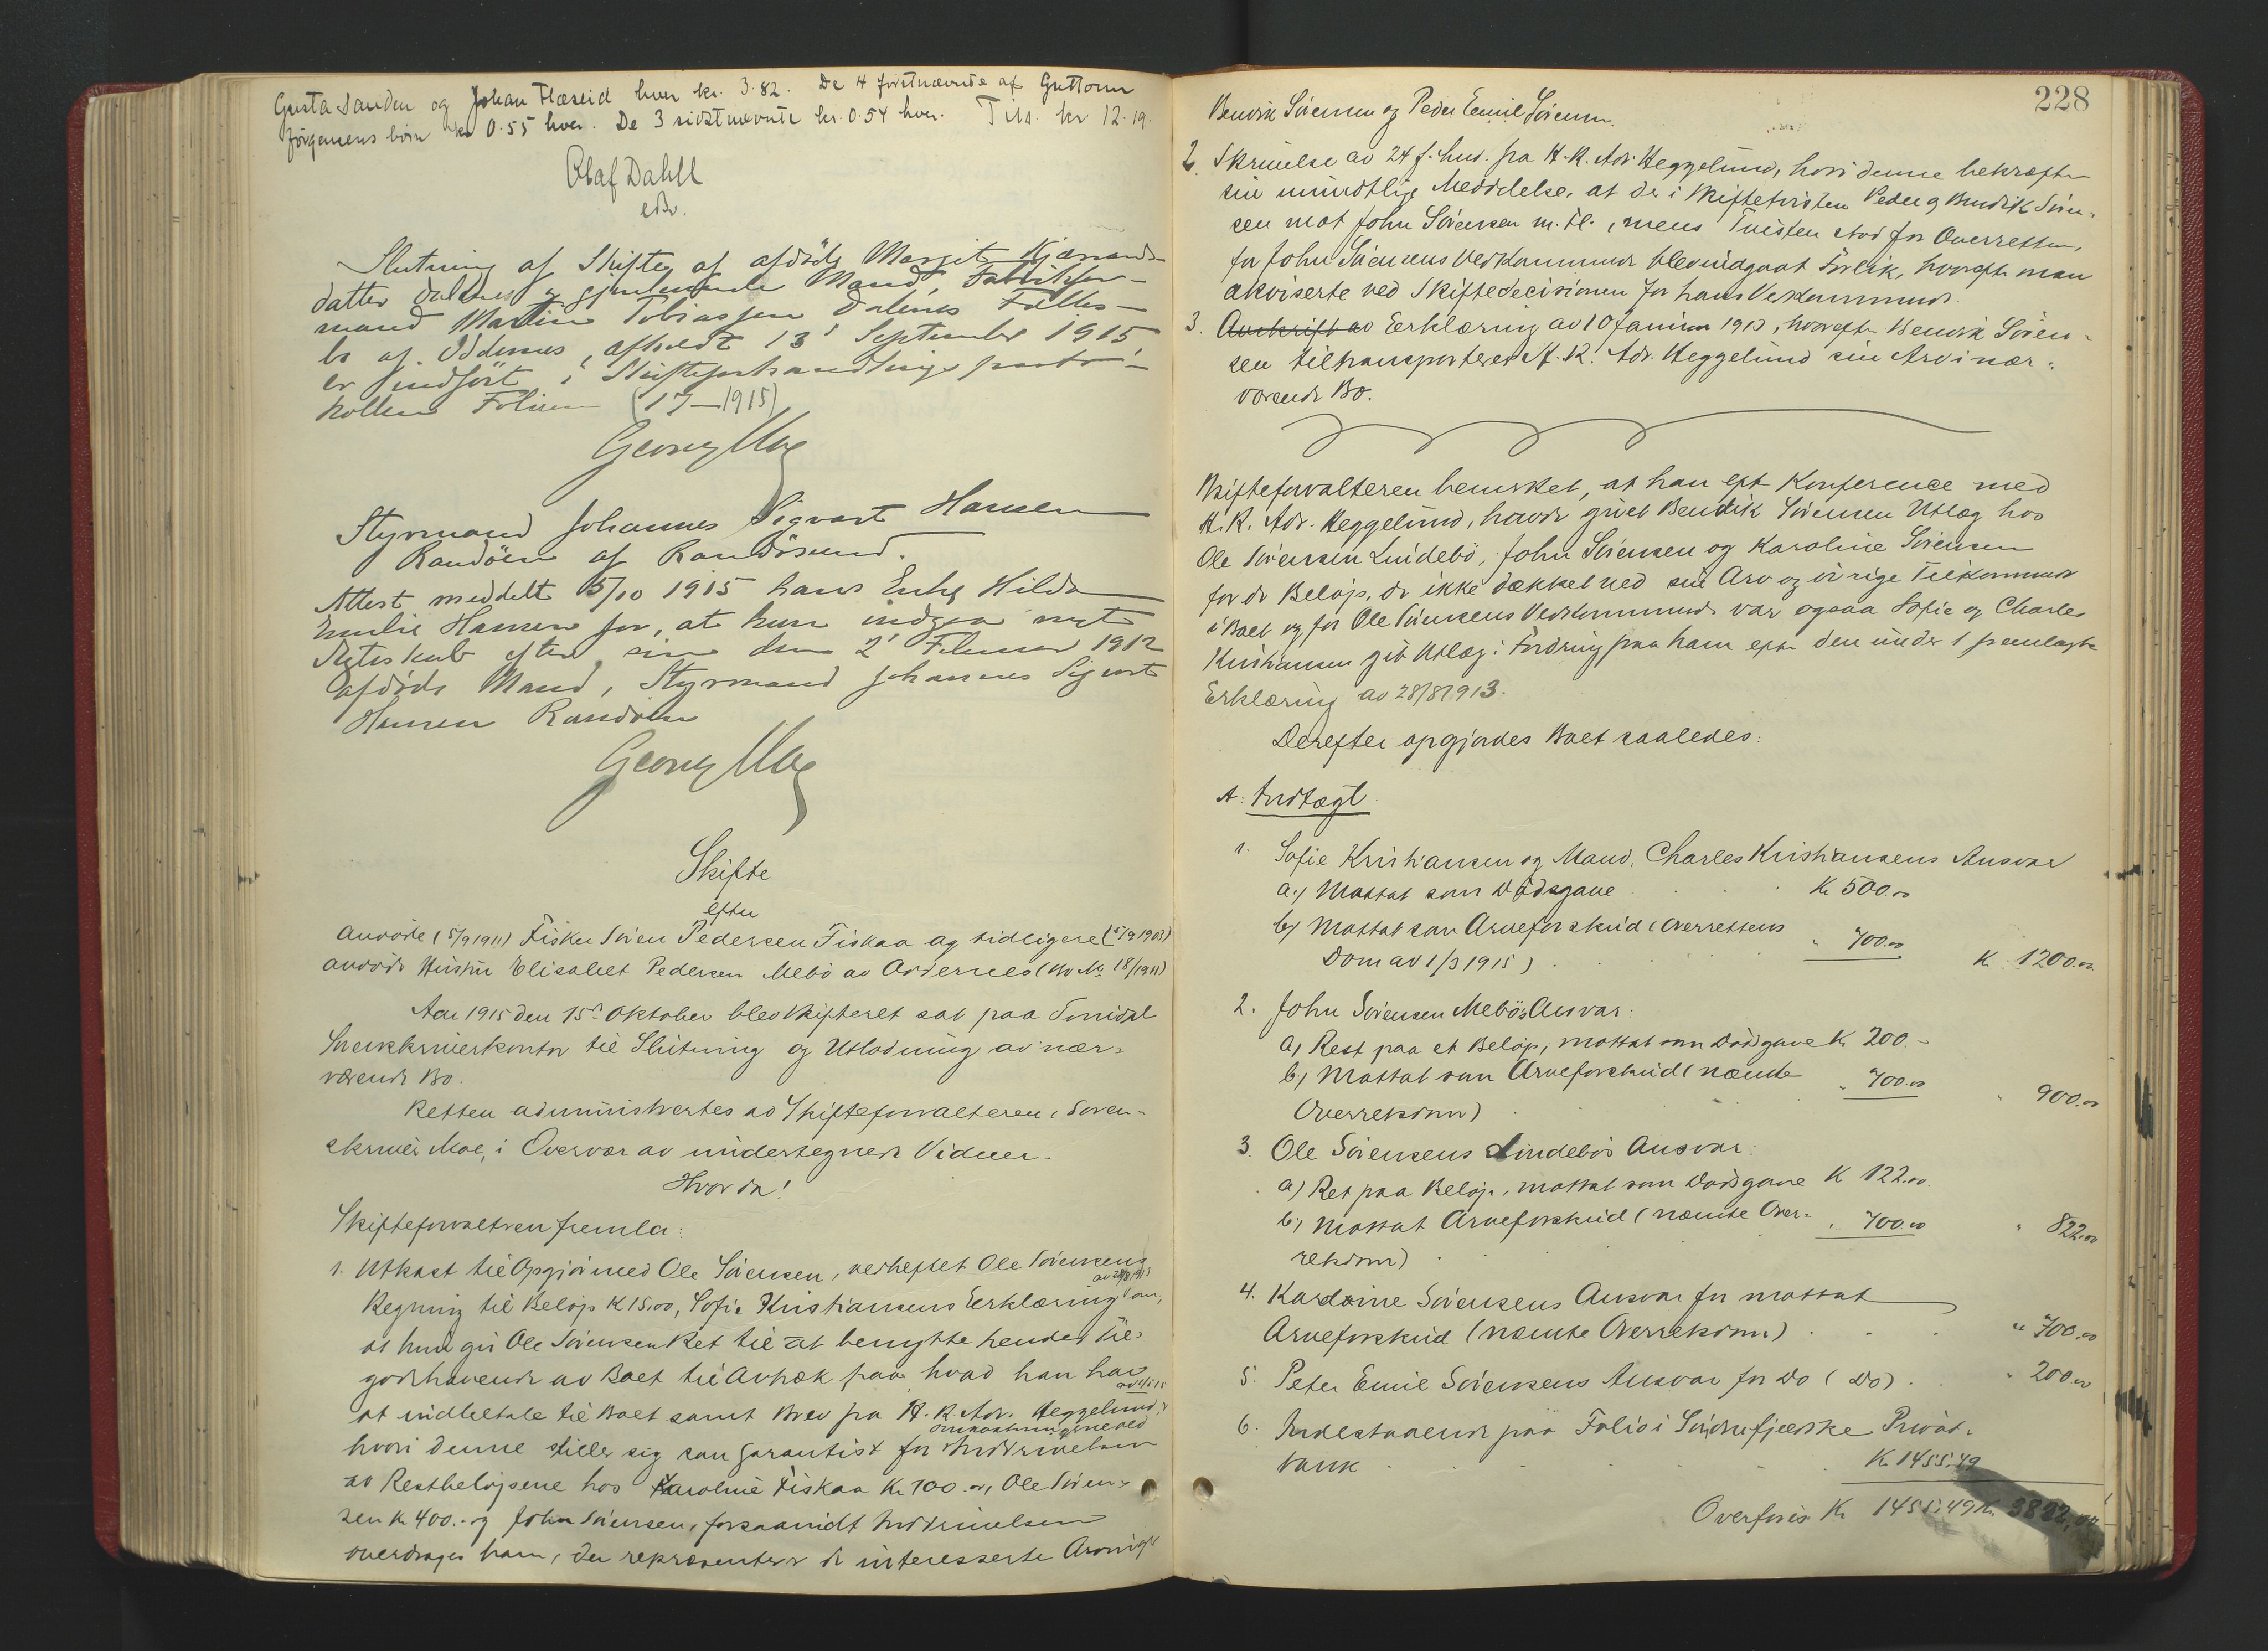 Gusta Sanden og Johan Flæseid hver kr. 3.82. De 4 førstnævnte af Guttorm
Jørgensens børn kr 0.55 hver. De 3 sidstnævnte kr. 0.54 hver. Tils. kr 12.19.
Olaf Dahll
Slutning af Skiftet af afdöde Margit
datter Dalenes og gjenlevende Mand,
mand Martin Tobiassen Dalenes Fælles-
bo af Oddernes, afholdt 13' September 1915,
er indfört i Skifteforhandlingsproto-
kollens Folium (17-1915)
Georg Moe
Styrmand Johannes Sigvart Hansen
Randöen af Randösund.
Attest meddelt 5/10 1915 hans Enke Hilda
Emilie Hansen for, at hun indgaa nyt
Ægteskab efter sin den 2' Februar 1912
afdöde Mand, Styrmand Johannes Sigvart
Hansen Randöen
Georg Moe
Skifte
efter
avdöde (5/9 1911) Fisker Sören Pedersen Fiskaa og tidligere (5/9 1903)
avdöde Hustru Elisabet Pedersen Mebö av Oddernes (Bo No 18/1911)
Aar 1915 den 15de Oktober blev Skifteret sat paa Torridal
Sorenskriverkontor til Slutning og Utlodning av nær-
værende Bo.
Retten administrertes av Skifteforvalteren, Soren-
skriver Moe, i Overvær av undertegnede Vidner.
Hvorda!
Skifteforvalteren fremla:
1. Utkast til Opgjör med Ole Sörensen, vedheftet Ole Sörensens
av 28/8 1913
Regning til Belöp K 15,00, Sofie Kristiansens Erklæring om,
at hun gir Ole Sörensen Ret til at benytte hendes Til-
godehavende av Boet til Avtræk paa hvad han har
at indbetale til Boet samt Brev fra H. R. Adv. Heggelund,
hvori denne stiller sig som Garantist for Inddrivelsen
av Restbelöpene hos Karoline Fiskaa Kr. 700.00, Ole Sören-
sen Kr 400.- og John Sörensen, forsaavidt Inddrivelsen
overdrages ham, der repræsenterer de interesserte Arvinger
228
Bendik Sörensen og Peder Emil Sörensen.
2. Skrivelse av 24 f. hud. fra H. R. Adv. Heggelund, hvori denne bekræfter
sin mundtlige Meddelelse, at der i Skiftetvisten Peder og Bendik Sören-
sen mot John Sörensen m. fl., mens Tvisten stod for Overretten,
for John Sörensens Vedkommende blev indgaat Forlik, hvorefter man
akviserte ved Skiftedecisionen for hans Vedkommende.
3. Avskrift av Erklæring av 10 Januar 1913, hvorefter Bendik Sören-
sen tiltransporterer H. R. Adv. Heggelund sin Arv i nær-
værende Bo.
Skifteforvalteren bemerket, at han eft Konference med
H. R. Adv. Heggelund, havde givet Bendik Sörensen Utlæg hos
Ole Sörensen Lindebö, John Sörensen og Karoline Sörensen
for de Belöp, de ikke dækket ved sin Arv og övrige Tilkommende
i Boet og for Ole Sörensens Vedkommende var ogsaa Sofie og Charles
Kristiansen git Utlæg i Fordring paa ham efter den under 1 fremlagte
Erklæring av 28/8 1913.
Derefter opgjordes Boet saaledes:
A. Indtægt.
1. Sofie Kristiansen og Mand, Charles Kristiansens Ansvar
a.) Mottat som Dödsgave Kr 500.00
b) Mottat som Arveforskud (Overrettens " 700.00
Dom av 1/3 1915) K 1200.00
2. John Sörensen Mebös Ansvar:
a) Rest paa et Belöp, mottat som Dödsgave K. 200.-
b.) Mottat som Arveforskud (nævnte " 700.00 " 900.00
Overretsdom)
3. Ole Sörensens Lindebös Ansvar:
a) Rest paa Belöp, mottat som Dödsgave K 122.00
b) Mottat Arveforskud (nævnte Over- " 700.00 " 822.00
retsdom)
4. Karoline Sörensens Ansvar for mottat
Arveforskud (nævnte Overretsdom) " 700.00
5. Peter Emil Sörensens Ansvar for Do (Do) " 200.00
6. Indestaaende paa Folio i Söndenfjeldske Privat-
bank K. 1455.49
Overföres K 1455.49 K. 3822,00